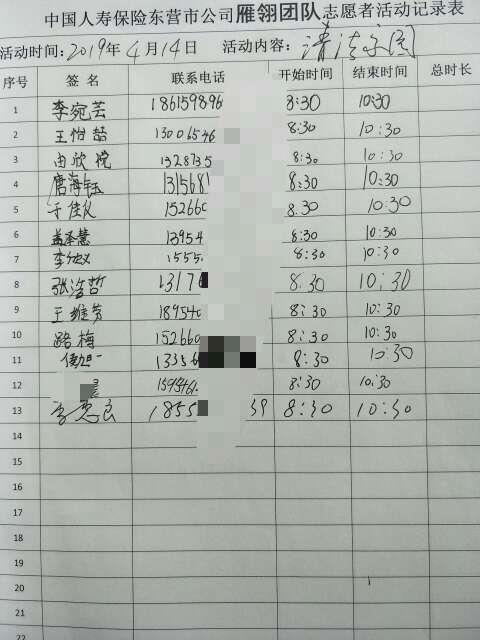 中国人寿保险东营市公司雁翎团队志愿者活动记录表
活动时间: 2019年4月14日 活动内容: 清洁家园
序号 签名 联系电话 开始时间 结束时间 总时长
1 李宛芸 186159896 8:30 10:30
2 13006546 8:30 10:30
3 由欣悦 1328735 8:30 10:30
4 唐海钰 1315681 8:30 10:30
5 于佳仪 152660 8.30 10:30
6 孟泽慧 13954 8:30 10:30
7 1555 8:30 10:30
8 张浩哲 13176 8.30 10:30
9 王维芳 189540 8:30 10:30
10 路梅 152660 8:30 10:30
11 13356 8:30 10:30
12 8:30 10:30
13 1855 39 8:30 10:30
14
15
16
17
18
19
20
21
22